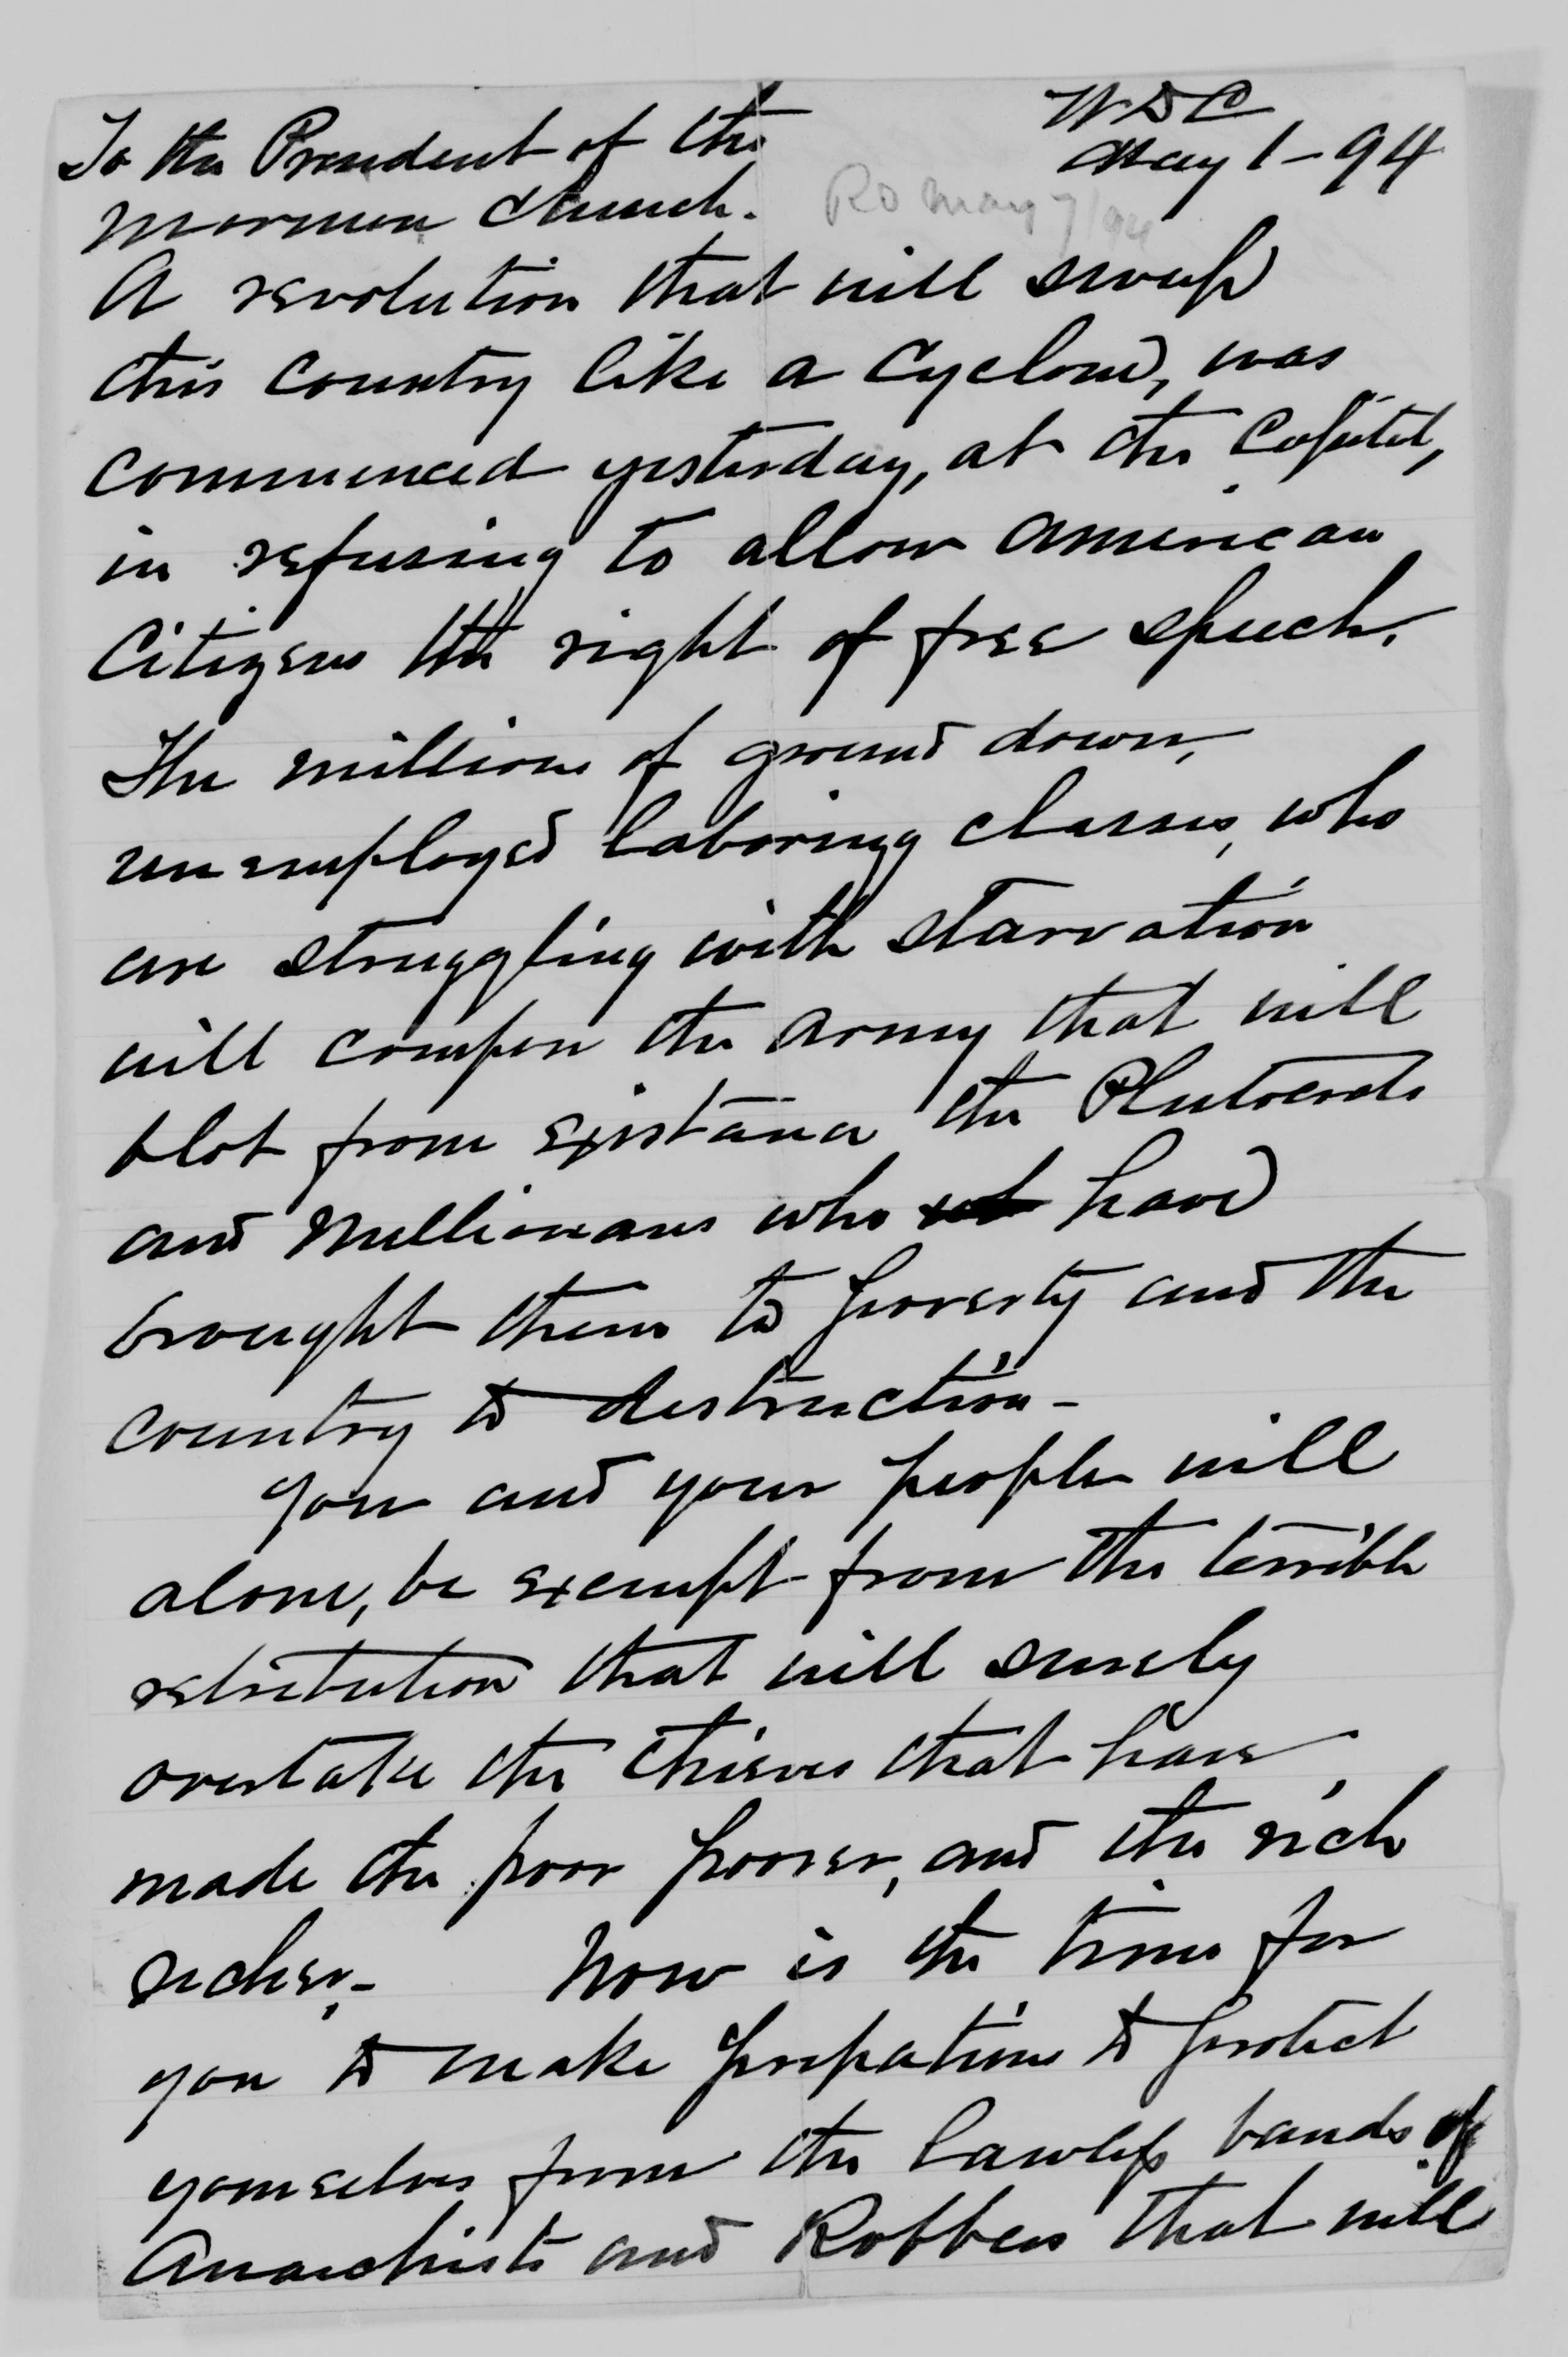 W.D.C
May 1-94
To the President of the
Mormon Church.
Rc May 7/94
A revolution that will sweep
this country like a Cyclone, was
commenced yesterday, at the Capitol,
in refusing to allow American
Citizens the right of free speech.
The millions of ground down,
unemployed laboring classes, who
are struggling with starvation
will compose the army that will
blot from existance the Plutocrats
and Millionares who have
brought them to poverty and the
country to destruction-
You and your people will
alone, be exempt from the terrible
retribution that will surely
overtake the thieves that have
made the poor poorer, and the rich
richer.- Now is the time for
you to make prepations to protect
yourselves from the lawless bands of
Anarchists and Robbers that will